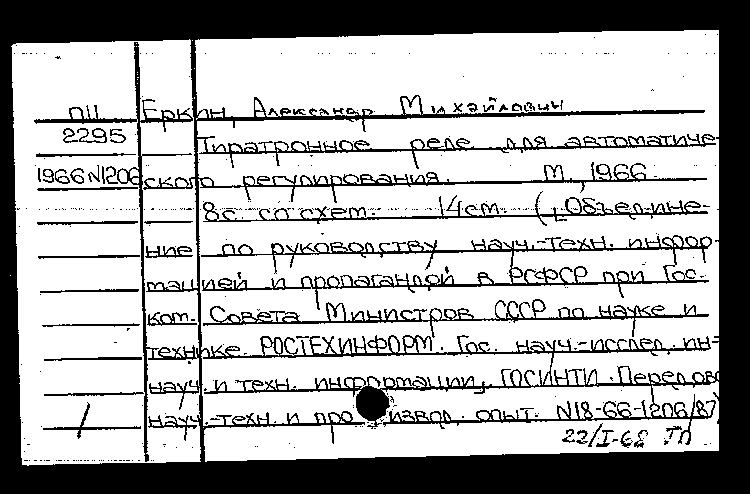 П11 Еркин, Александр Михайлович
2295 Тиратронное реле для автоматиче-
1966 N1206 ского регулирования. М., 1966
8с. со схем. 14см. ([Объедине-
ние по руководству науч.-техн. инфор-
мацией и пропагандой в РСФСР при Гос.
ком. Совета Министров СССР по науке и
технике. РОСТЕХИНФОРМ. Гос. науч.-исслед. ин-
науч. и техн. информации, ГОСИНТИ. Передов
/ науч.-техн. и производ. опыт. N18-66-1206/87)
22/I-68 ТП